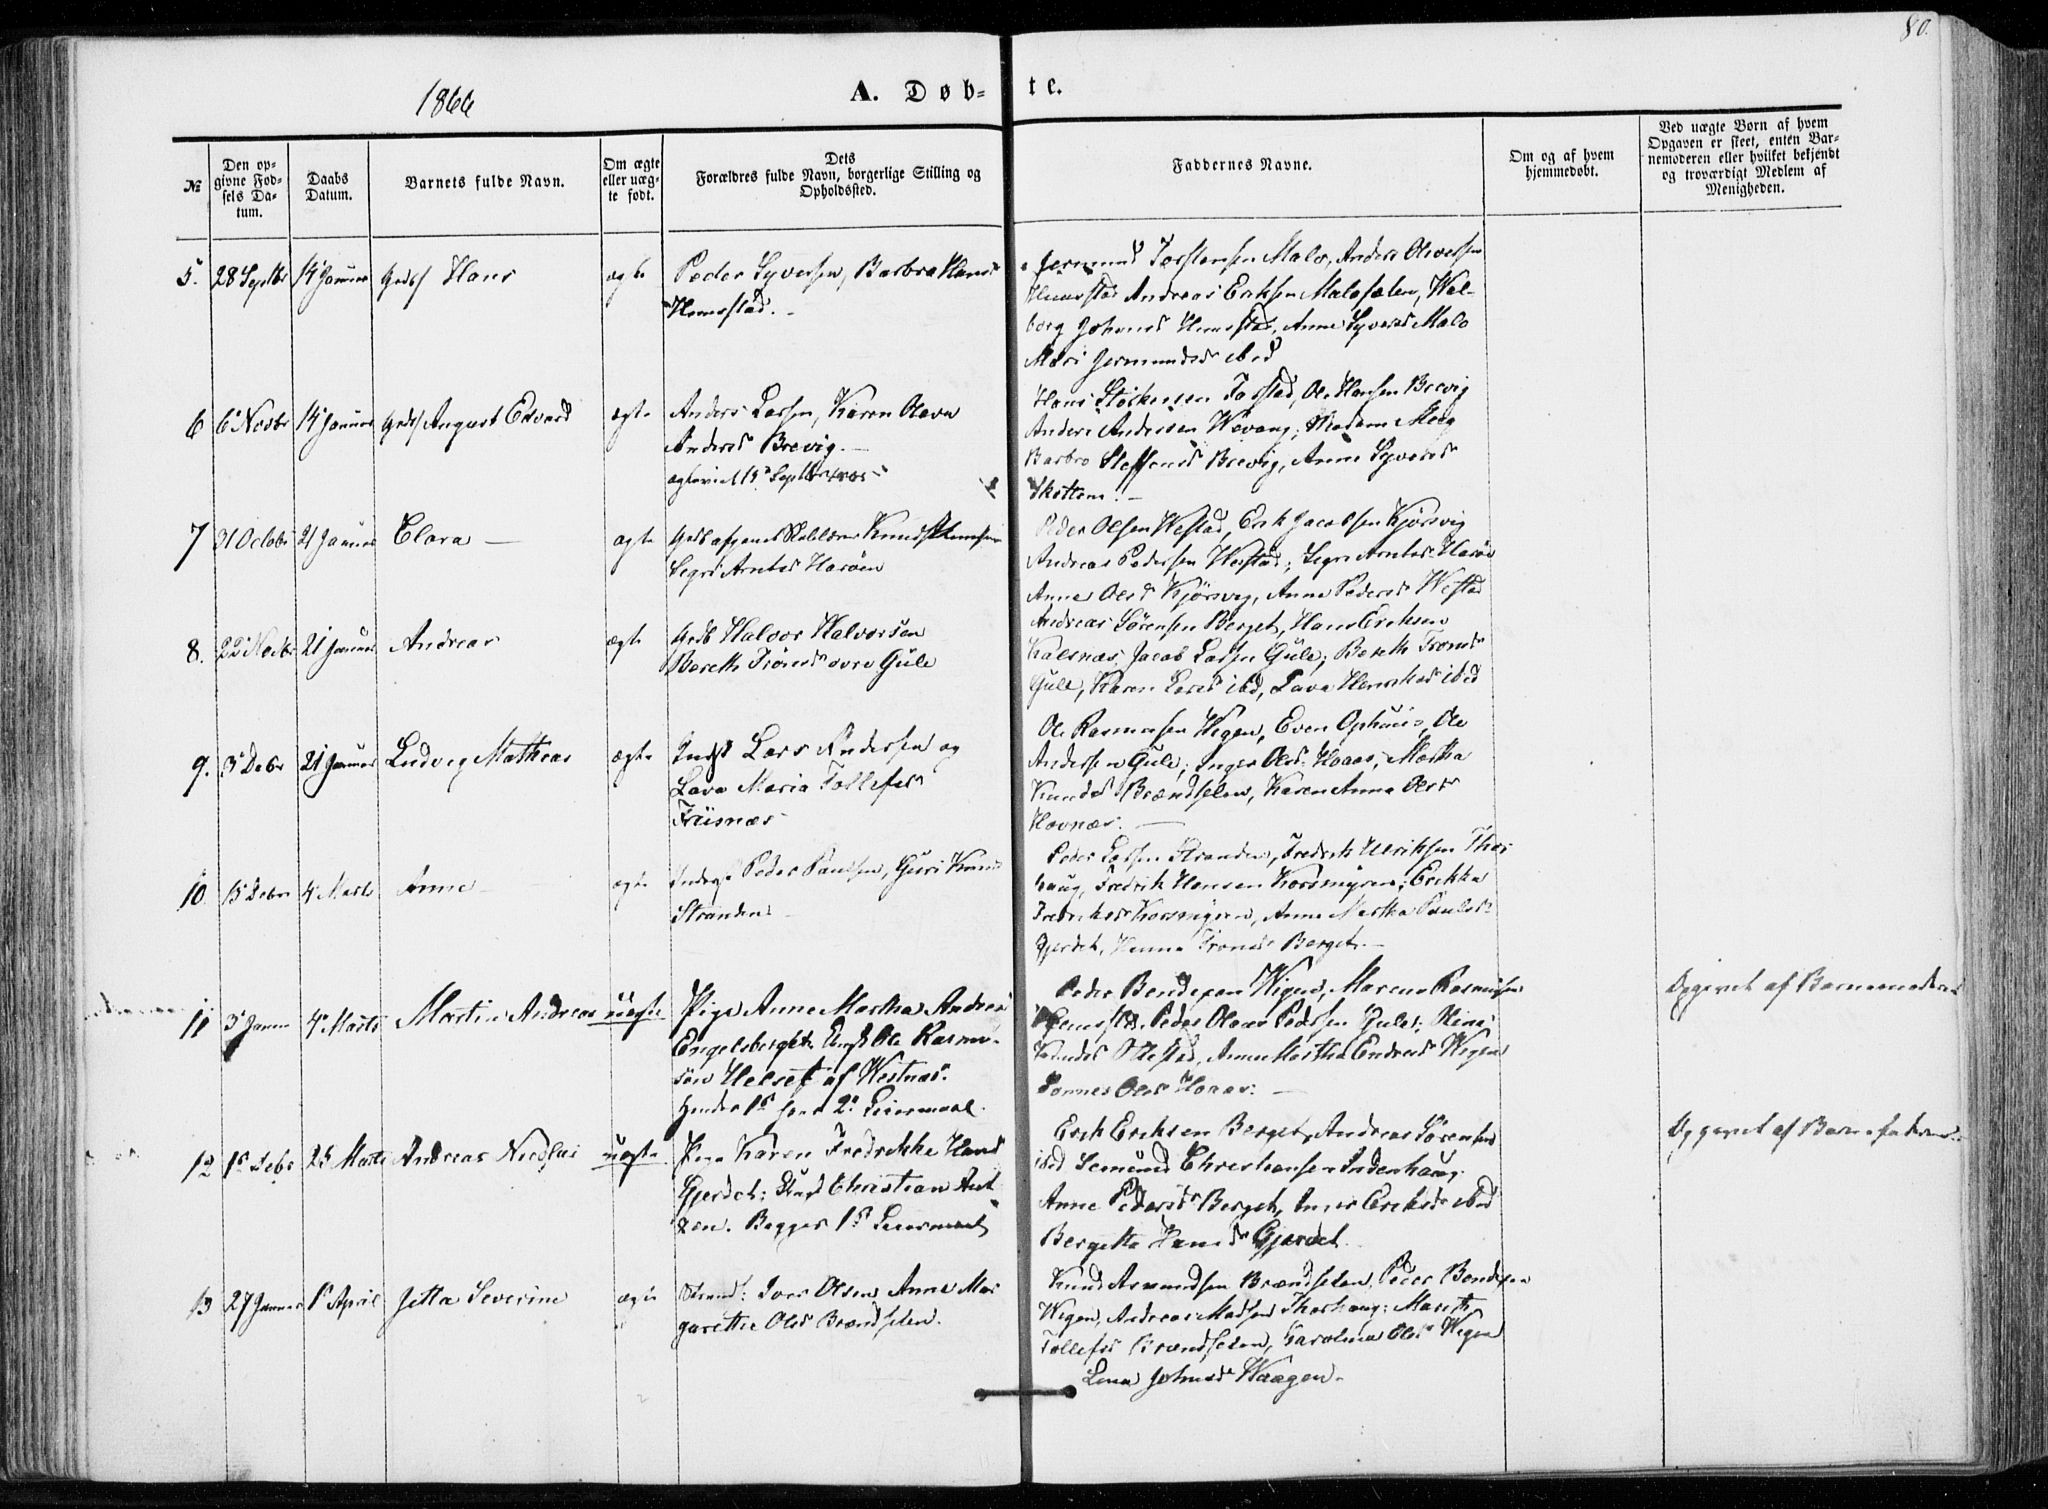 80.
1866
A. Døb-te.
№
Den opgivne Fødsels Datum.
Daabs Datum.
Barnets fulde Navn.
Om ægte eller uægte født.
Dets Forældres fulde Navn, borgerlige Stilling og Opholdssted.
Faddernes Navne.
Om og af hvem hjemmedøbt.
Ved uægte Børn af hvem Opgaven er skeet, enten Barnemoderen eller hvilket bekjendt og troværdigt Medlem af Menigheden.
5. 28 Septbr 14 Januar Hans ægte
Peder Syversen, Barbro Hansd
Hemstad.
Torstensen Malo, Anders Olivessen
Andreas Eriksen Malosæten, Wal-
borg Johansd Anne Syversd Malo
Mari Jermundsd ibid
6 6 Novbr 14 Januar August Edvard ægte
Anders Larsen, Karen Olava
Andersd Brevig.
ægteviet 15 Septbr
Hans Torstad, Ole Hansen Brevig
Anders Andersen Madame Meeg
Barbro Steffensd Brevig, Anne Syversd
Skottem.
7 31 Octobr 21 Januar Clara ægte
Knud
Segri Arntsd Harøen
Peder Olsen Westad, Erik Jacobsen Kjørsvig
Andreas Pedersen Westad; Segri Arntsd Harøe
Anne Olsd Kjørsvig, Anne Pedersd Westad
8. 22 Novbr 21 Januar Andreas ægte
Halvor Halvorsen
Bereth Tronsd øvre Gule
Andreas Sørensen Berget, Hans Eriksen
Kalsnæs, Jacob Larsen Gule; Bereth Tronsd
Gule, Karen Larsd ibd, Lava ibid
9. 3 Debr 21 Januar Ludvig Mathias ægte
Lars Andersen og
Lava Maria Tollefsd
Friisnæs
Ole Rasmusen Wigen, Even Ophuus, Ole
Andersen Gule; Inger Olsd Haaas, Martha
Knudsd Brændselen, Karen Anna Olsd
Hovnæs.
10. 15 Debr 4 Marts Anne ægte
Peder Paulsen, Guri Knuds
Stranden
Peder Larsen Stranden, Fredrik Ulriksen Thor
haug, Fredrik Hansen Korsmyren; Erikka
Fredriksd Korsmyren, Anne Martha Paulsd
Gjerdet, Hanna Tronsd Berget.
11 3 Janu 4 Marts Martin Andreas uægte
Pige Anne Martha Andreas
Engelsberget. Ungk Ole Rasmu-
sen Helset af Westnæs.
Hendes 1ste hans 2 Leiermaal.
Peder Bendixen Wigen, Maren Rasmusen
Peder Olaus Pedersen Gule; Stina
Knudsd Anne Martha Endresd Wigen
Olsd Haaas.
Opgivet af Barnemoderen
12 1 Debr 25 Marts Andreas Nicolai uægte
Pige Karen Fredrikke Hansd
Gjerdet; Ungk Christian Ant
zen. Begges 1ste Leiermaal
Erik Eriksen Berget, Andreas Sørensen
ibid Semund Christiansen Indenhaug
Anne Pedersd Berget, Eriksd ibid
Bergitta Hansd Gjerdet.
Opgivet af Barnefaderen
13 27 Januar 1 April Jetta Severine ægte
Strand: Iver Olsen Anne Mar
garethe Olsd Brændselen.
Knud Asmundsen Brændselen, Peder Bendixen
Wigen, Andreas Madsen Thorhaug; Mareth
Tollefsd Brændselen, Karolina Olsd Wigen
Lena Johnsd Waagen.